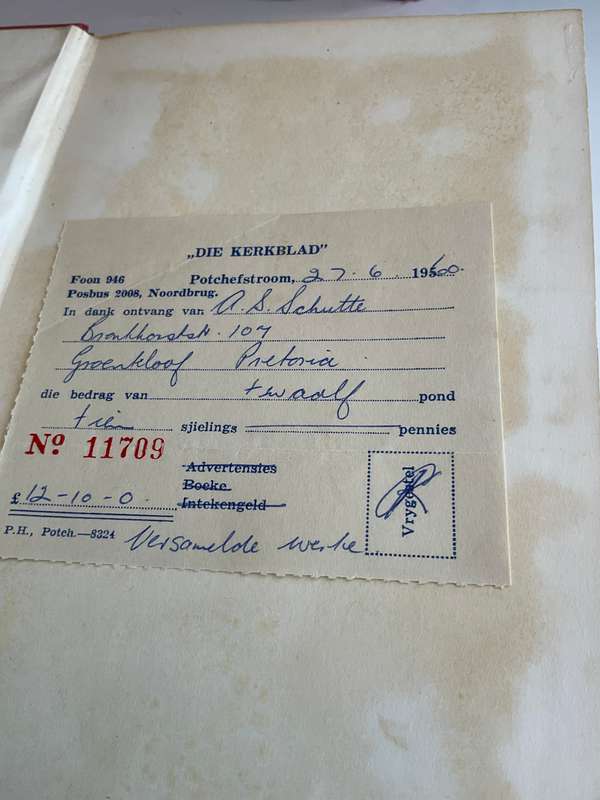 „DIE KERKBLAD"
Foon 946 Potchefstroom, 27·6. 1960.
Posbus 2008, Noordbrug.
In dank ontvang van A. S. Schutte
107
Groenkloof Pretoria.
die bedrag van twaalf pond
tien sjielings pennies
Nº 11709
Advertensies
Boeke
Intekengeld
£ 12-10-0.
Vrygestel
P.H., Potch.—8324 Versamelde werke